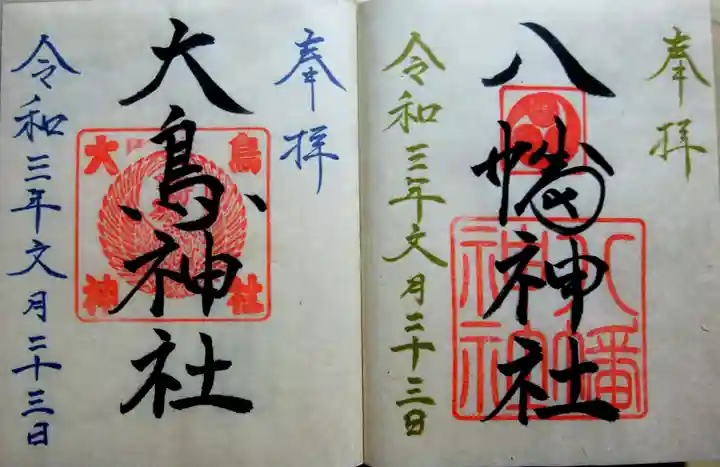 奉拝
八幡神社
八幡神社
令和三年文月二十三日
奉拝
大鳥神社
大鳥神社
令和三年文月二十三日